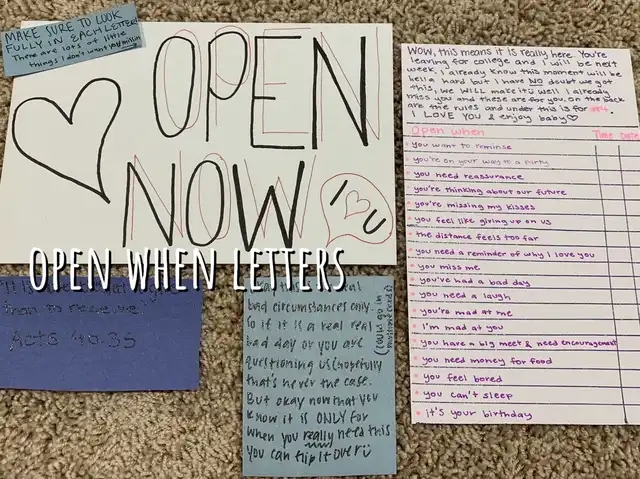 MAKE SURE TO LOOK
FULLY IN EACH LETTER!
There are lots of little
things I don't want you missin
OPEN
NOW
I ♡ U
OPEN WHEN LETTERS
WOW, this means it is really here. You're
leaving for college and I will be next
week. I already know this moment will be
hell a hard but I have NO doubt we got
this, we WILL make it ü well I already
miss you and these are for you. On the back
are the rules and under this is for #4.
I LOVE YOU & enjoy baby ♡
Open when Time Date
you want to reminse
you're on your way to a party
you need reassurance
you're thinking about our future
you're missing my kisses
you feel like giving up on us
the distance feels too far
you need a reminder of why I love you
you miss me
you've had a bad day
you need a laugh
you're mad at me
I'm mad at you
you have a big meet & need encouragement
you need money for food
you feel bored
you can't sleep
it's your birthday
than to receive."
Acts
bad circumstances only.
So if it is a real real
bad day or you are
questioning us (hopefully
that's never the case.
But okay now that you
know it is ONLY for
when you really need this
you can flip it over ü
(could go in